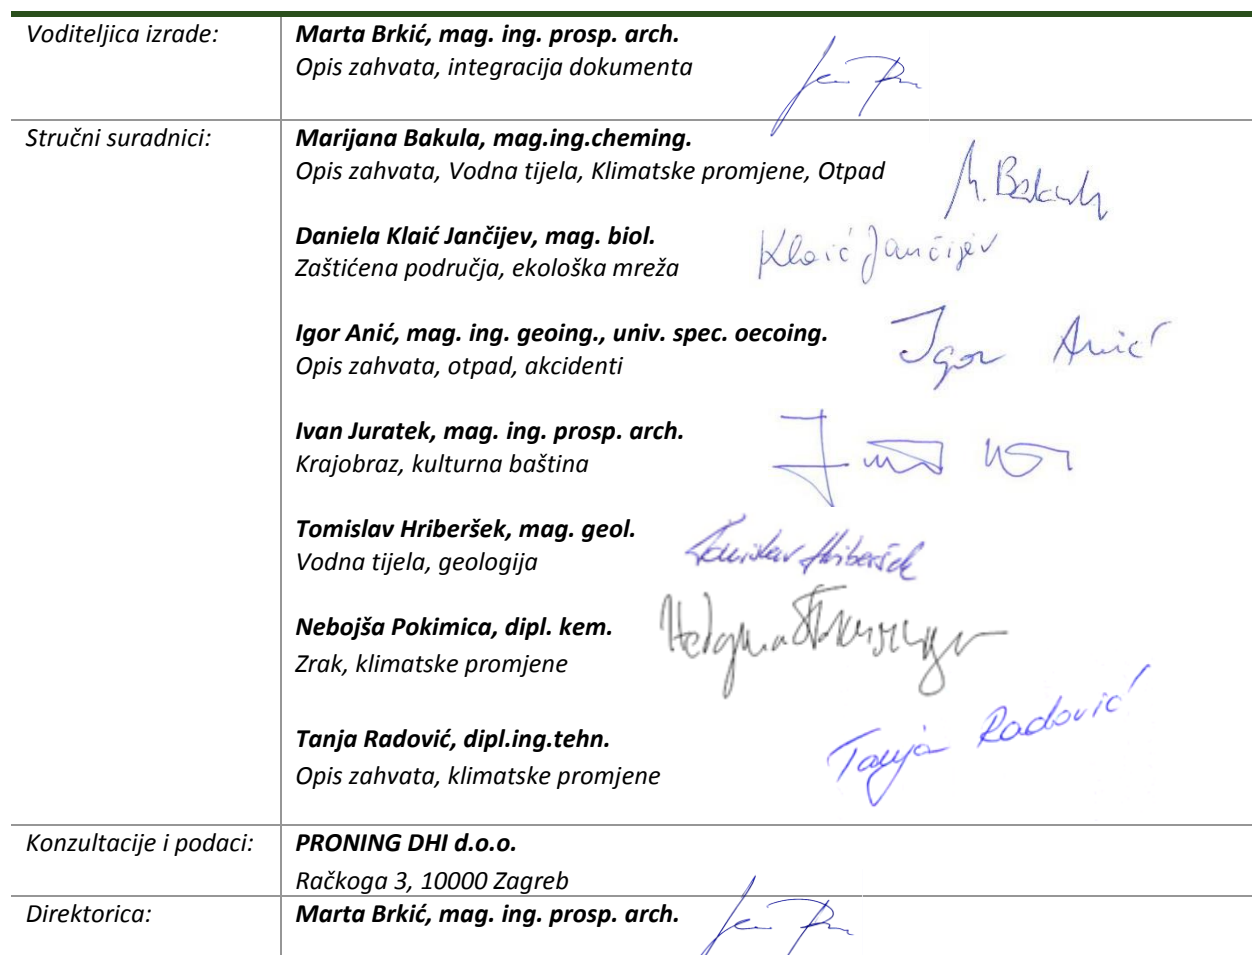 Voditeljica izrade:
Marta Brkić, mag. ing. prosp. arch.
Opis zahvata, integracija dokumenta
Stručni suradnici:
Marijana Bakula, mag.ing.cheming.
Opis zahvata, Vodna tijela, Klimatske promjene, Otpad
M. Bakula
Daniela Klaić Jančijev, mag. biol.
Zaštićena područja, ekološka mreža
Klaić Jančijev
Igor Anić, mag. ing. geoing., univ. spec. oecoing.
Opis zahvata, otpad, akcidenti
Igor Anić
Ivan Juratek, mag. ing. prosp. arch.
Krajobraz, kulturna baština
Tomislav Hriberšek, mag. geol.
Vodna tijela, geologija
Tomislav Hriberšek
Nebojša Pokimica, dipl. kem.
Zrak, klimatske promjene
Tanja Radović, dipl.ing.tehn.
Opis zahvata, klimatske promjene
Tanja Radović
Konzultacije i podaci:
PRONING DHI d.o.o.
Račkoga 3, 10000 Zagreb
Direktorica:
Marta Brkić, mag. ing. prosp. arch.